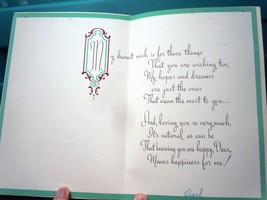 My dearest wish is for those things
That you are wishing too,
My hopes and dreams
are just the ones
That mean the most to you...
And, loving you so very much,
It's natural as can be
That knowing you are happy, Dear,
Means happiness for me!